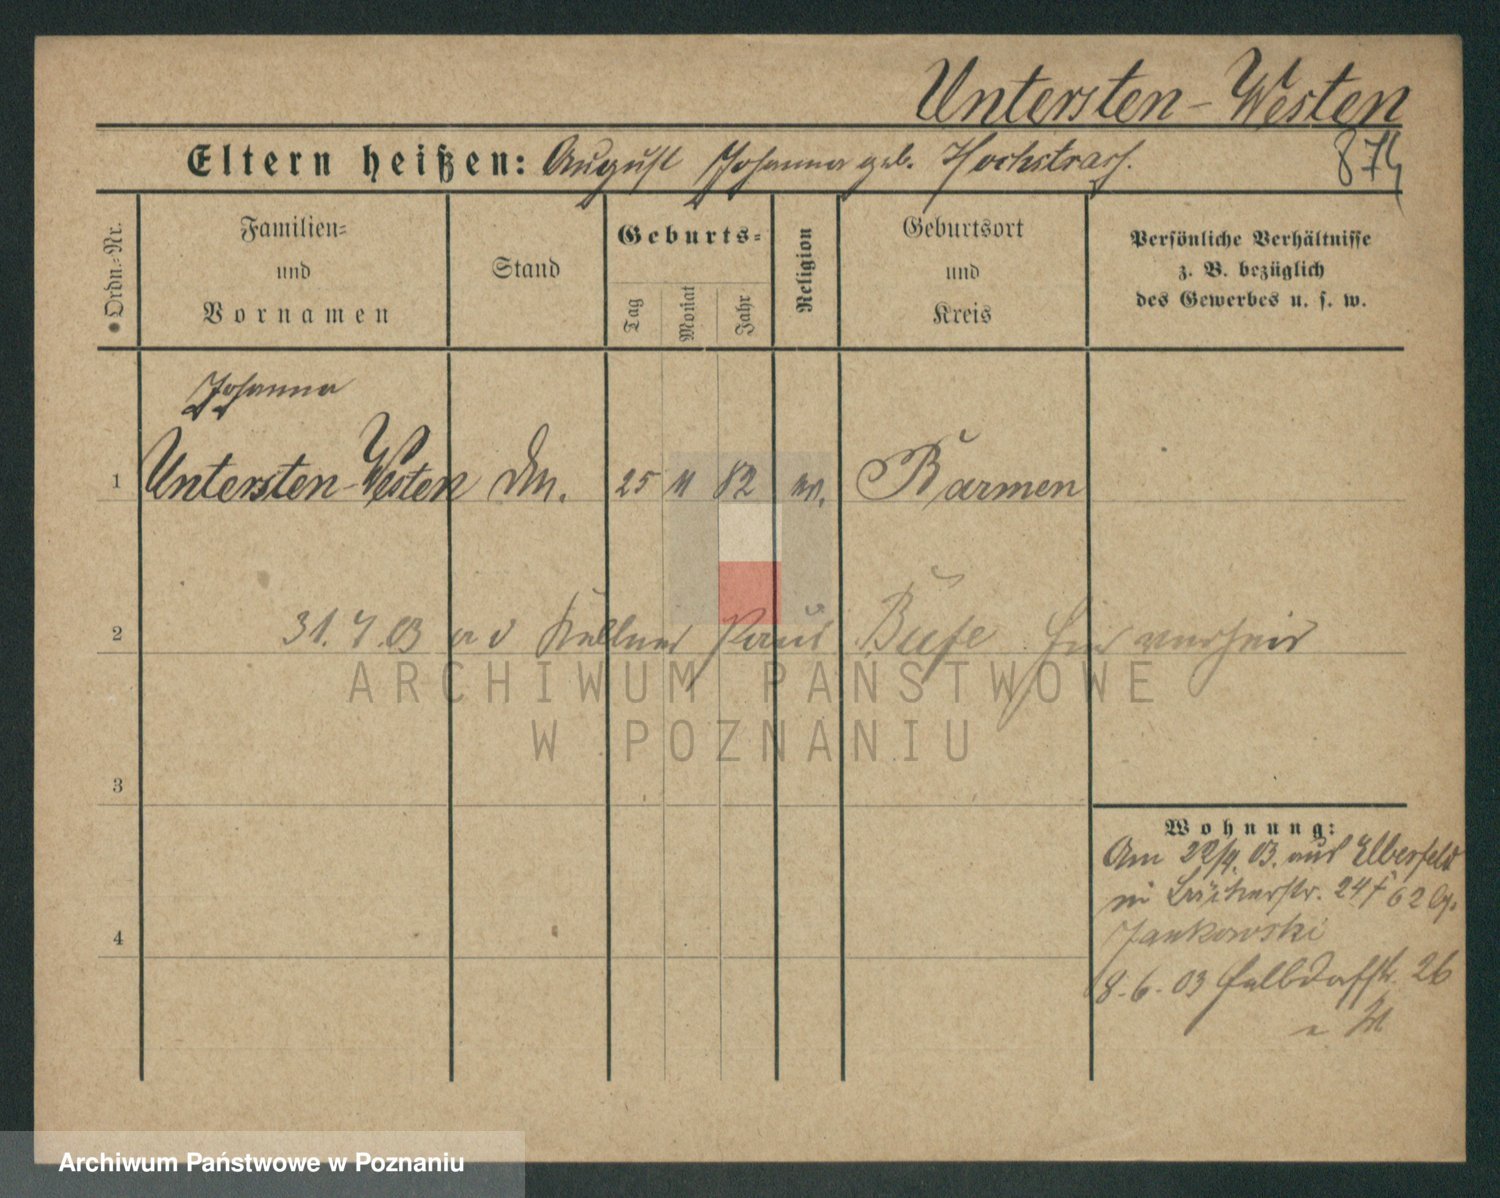 Untersten-Westen
Eltern heißen: August Johanna geb. Hochstrass.
874
Ordn.-Nr.
Familien-
und
Vornamen
Stand
Geburts-
Tag
Monat
Jahr
Religion
Geburtsort
und
Kreis
Persönliche Verhältnisse
z. B. bezüglich
des Gewerbes u. s. w.
Johanna
1 Untersten-Westen 25 11 82 ev. Barmen
2 31. 7. 03 Kellner Paul Büfe hier verheir
ARCHIWUM PAŃSTWOWE
W POZNANIU
3
Wohnung:
Am 22/4. 03. aus Elberfeld
in 24
4
Jankowski
8. 6. 03 26
Archiwum Państwowe w Poznaniu